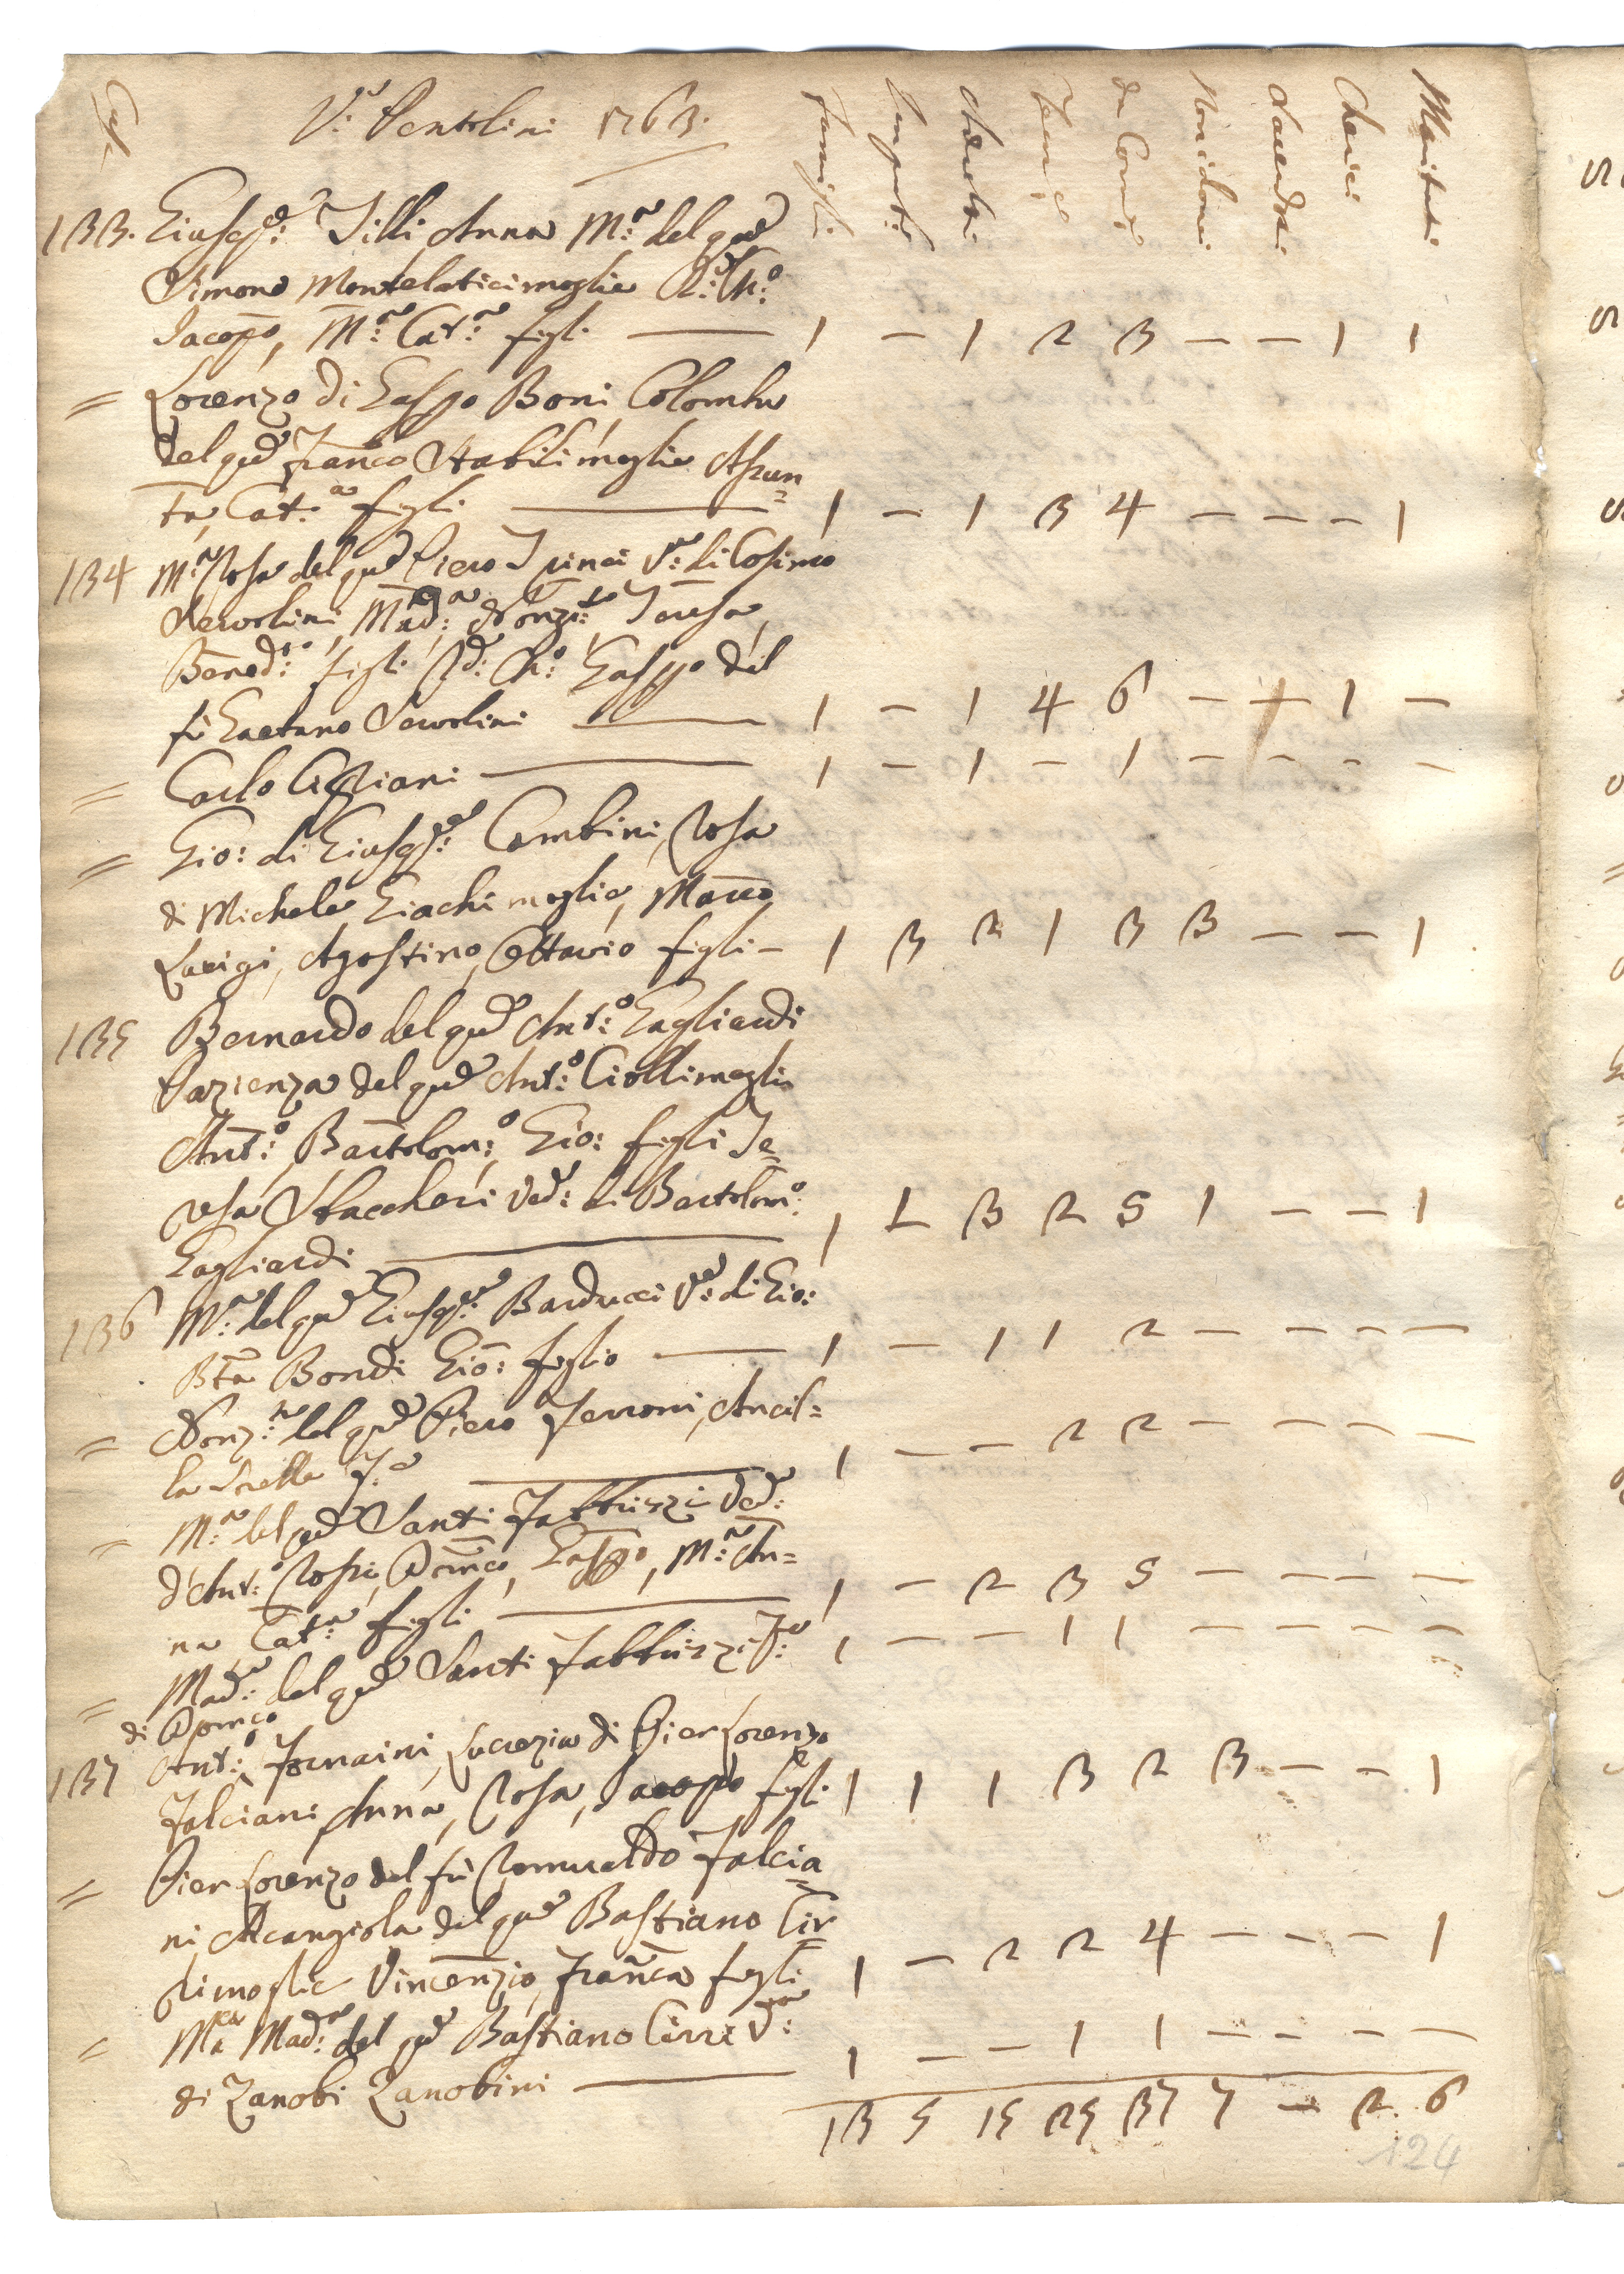 Case
V.a Pentolini 1763.
Famiglie
Impuberi
Adulti
Fem.e
da Com.e
Non idonei
Sacerdoti
Cherici
Maritati
133. Giusepp.e Tilli Anna M.a del qud
Simone Montelatici moglie R.d Ch.o
Jacopo, M.a Cat.a figli — 1 — 1 2 3 — — 1 1
= Lorenzo di Gasp.o Boni Colomba
del qud Fran.co Stabili moglie Assun=
ta, Cat.a figli — 1 — 1 3 4 — — — 1
134 M.a Rosa del qud Piero Trinci V.a di Cosimo
Mad.a Nonzi.ta Teresa,
Bened.a figli R.d Ch.o Gasp.o del
fù Gaetano — 1 — 1 4 6 — + 1 —
= Carlo Cipriani — 1 — 1 — 1 — — — —
= Gio: di Giusepp.e Cambini, Rosa
di Michele Giachi moglie, Marco
Luigi, Agostino, Ottavio figli — 1 3 2 1 3 3 — — 1
135 Bernardo del qud Ant.o Gagliardi
Pazienza del qud Ant.o Ciolli moglie
Ant.o, Bartolom.o, Gio: figli Te=
resa Staccheri Ved.a di Bartolom.o
Gagliardi — 1 1 3 2 5 1 — — 1
136 M.a del qud Giusepp.e Barducci V.a di Gio:
Bta Bondi Gio: figlio — 1 — 1 1 2 — — — —
= Nonz.ta del qud Piero Ferroni, Ancil=
la Sorella F.e — 1 — — 2 2 — — — —
= M.a del qud Santi Fabbrizzi Ved.a
d'Ant.o Rossi, Dom.co, Gasp.o, M.a An=
na Cat.a figli — 1 — 2 3 5 — — — —
= Mad.a del qud Santi Fabbrizzi F.a 1 — — 1 1 — — — —
di Dom.co
137 Ant.o Fornaini, Lucrezia di Pier Lorenzo
Falciani, Anna, Rosa, Jacopo figli 1 1 1 3 2 3 — — 1
= Pier Lorenzo del fù Romualdo Falcia=
ni Arcangiola del qud Bastiano Cir=
ri moglie Vincenzio, Fran.ca figli 1 — 2 2 4 — — — 1
= M.a Mad.a del qud Bastiano Cirri V.a
di Zanobi Zanobini — 1 — — 1 1 — — — —
13 5 15 25 37 7 — 2. 6
124